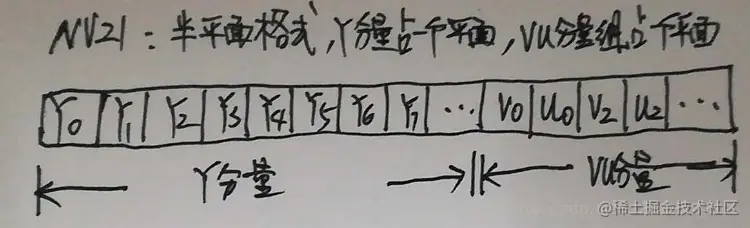 NV21：半平面格式，Y分量占一个平面，VU分量组占个平面
Y0 Y1 Y2 Y3 Y4 Y5 Y6 Y7 … V0 U0 V2 U2 …
Y分量 VU分量
@稀土掘金技术社区